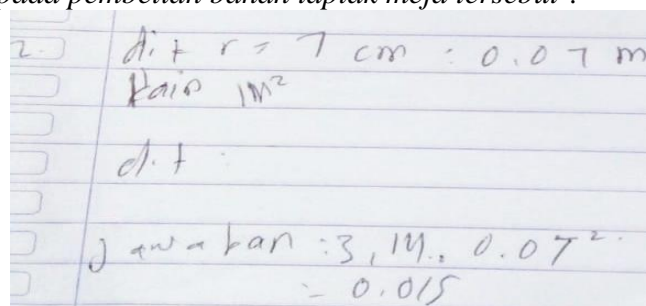 pada pembelian bahan taplak meja tersebut ?
2. dit r = 7 cm : 0.07 m
Kain 1M²
dit :
Jawaban : 3,14 . 0.07².
= 0.015